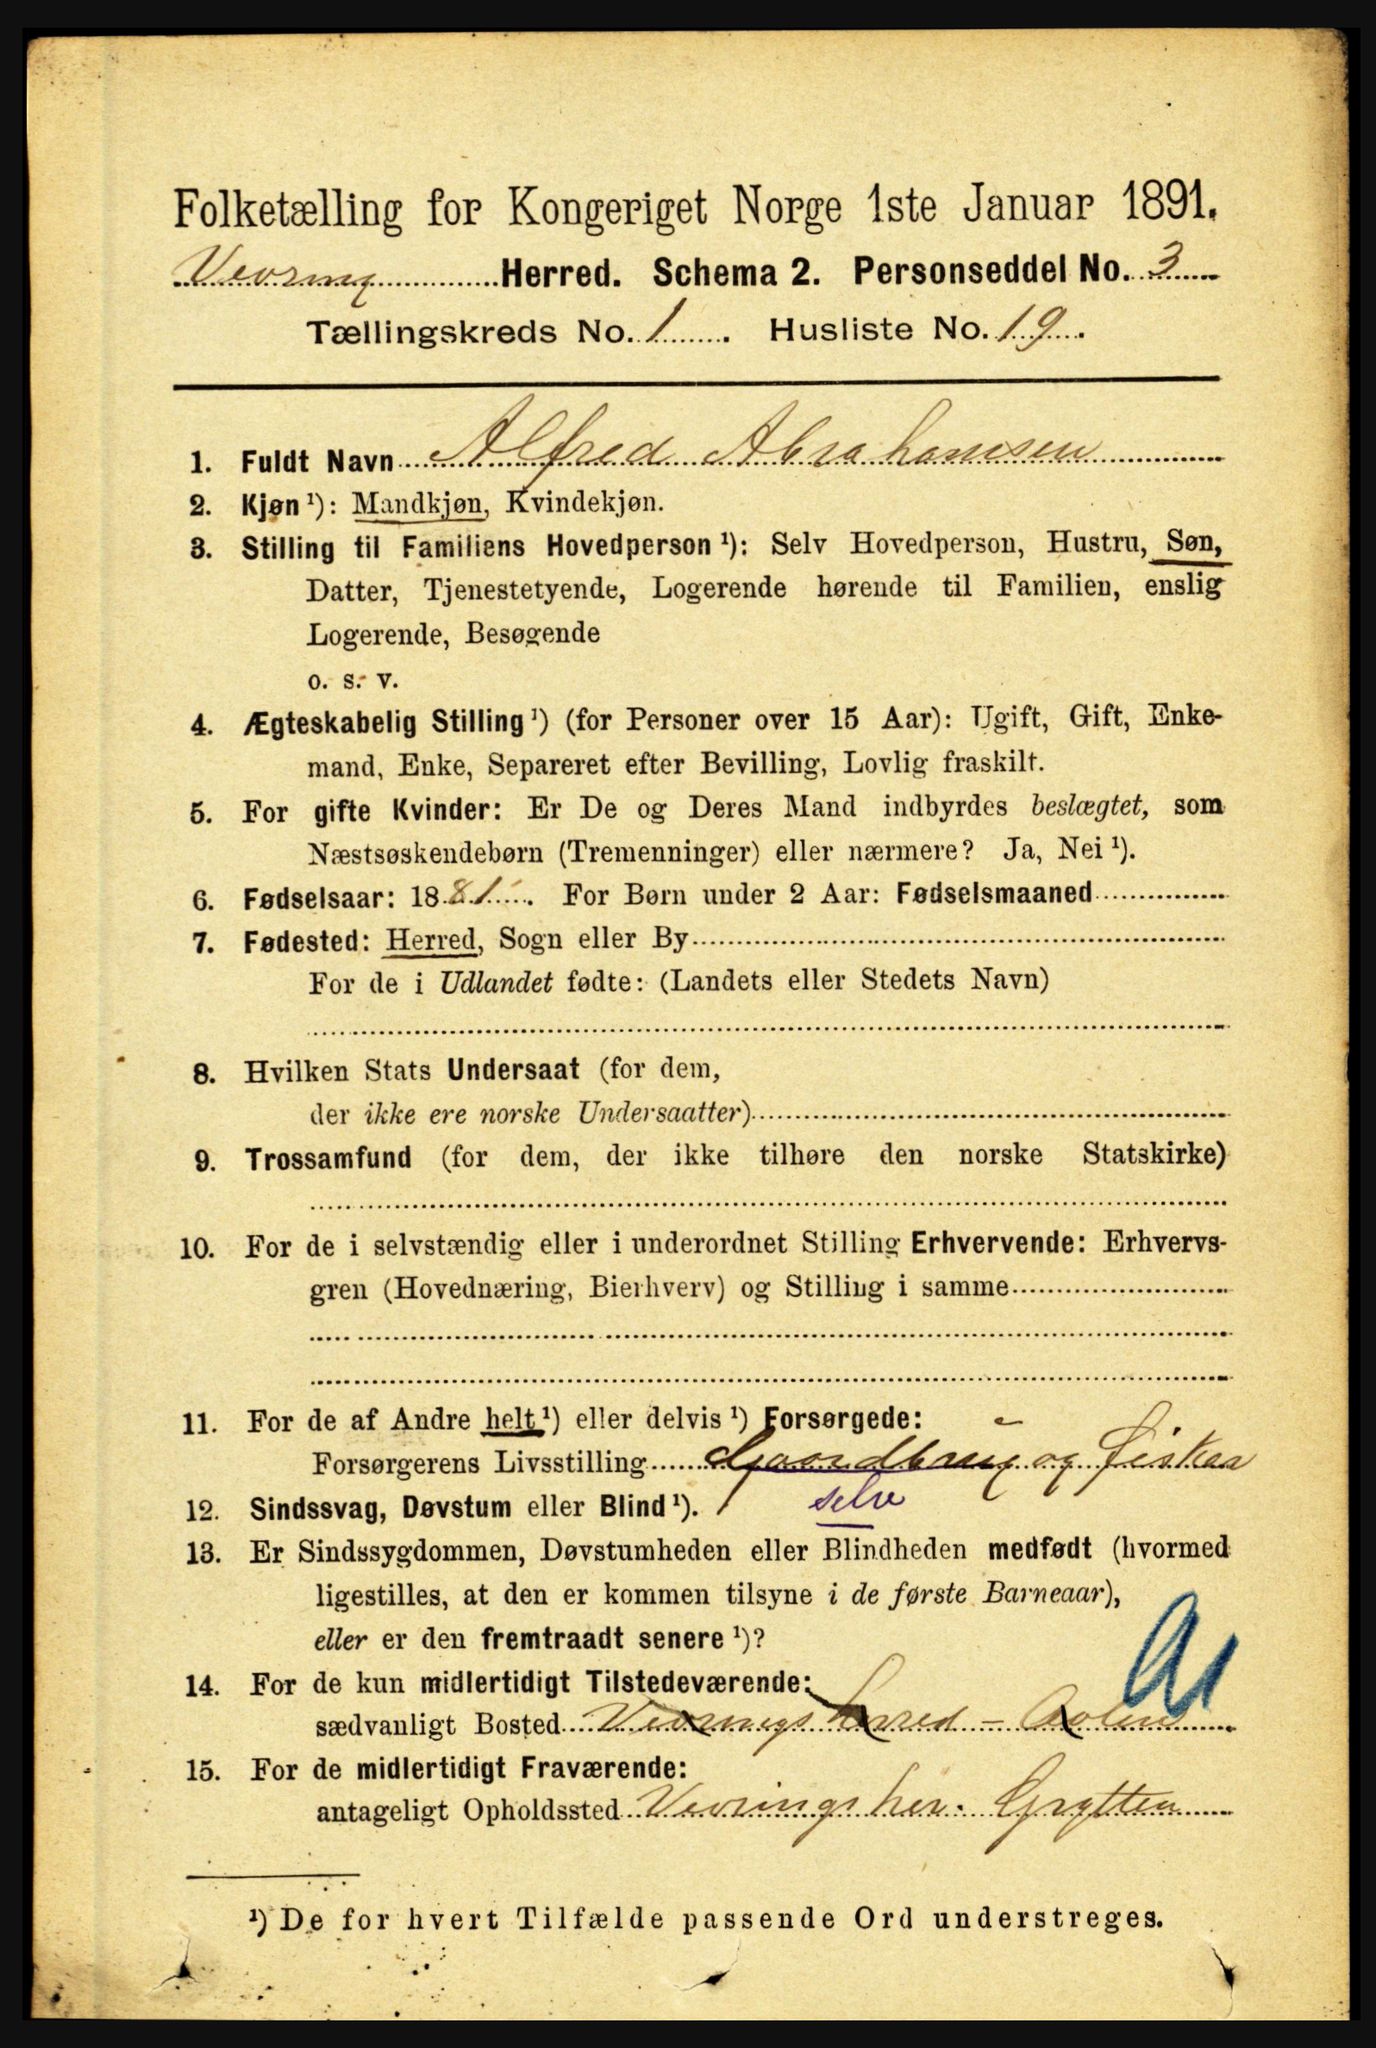 Folketælling for Kongeriget Norge 1ste Januar 1891.
Vevring Herred. Schema 2. Personseddel No. 3
Tællingskreds No. 1. Husliste No. 19.
1. Fuldt Navn Alfred Abrahamsen
2. Kjøn ¹): Mandkjøn, Kvindekjøn.
3. Stilling til Familiens Hovedperson ¹): Selv Hovedperson, Hustru, Søn,
Datter, Tjenestetyende, Logerende hørende til Familien, enslig
Logerende, Besøgende
o. s. v.
4. Ægteskabelig Stilling ¹) (for Personer over 15 Aar): Ugift, Gift, Enke-
mand, Enke, Separeret efter Bevilling, Lovlig fraskilt.
5. For gifte Kvinder: Er De og Deres Mand indbyrdes beslægtet, som
Næstsøskendebørn (Tremenninger) eller nærmere? Ja, Nei ¹).
6. Fødselsaar: 1881. For Børn under 2 Aar: Fødselsmaaned
7. Fødested: Herred, Sogn eller By
For de i Udlandet fødte: (Landets eller Stedets Navn)
8. Hvilken Stats Undersaat (for dem,
der ikke ere norske Undersaatter)
9. Trossamfund (for dem, der ikke tilhøre den norske Statskirke)
10. For de i selvstændig eller i underordnet Stilling Erhvervende: Erhvervs-
gren (Hovednæring, Bierhverv) og Stilling i samme
11. For de af Andre helt ¹) eller delvis ¹) Forsørgede:
Forsørgerens Livsstilling Gaardbrug og fisker
selv
12. Sindssvag, Døvstum eller Blind ¹).
13. Er Sindssygdommen, Døvstumheden eller Blindheden medfødt (hvormed
ligestilles, at den er kommen tilsyne i de første Barneaar),
eller er den fremtraadt senere ¹)?
14. For de kun midlertidigt Tilstedeværende:
sædvanligt Bosted Vevrings herred -
15. For de midlertidigt Fraværende:
antageligt Opholdssted Vevrings her. Grytten
¹) De for hvert Tilfælde passende Ord understreges.